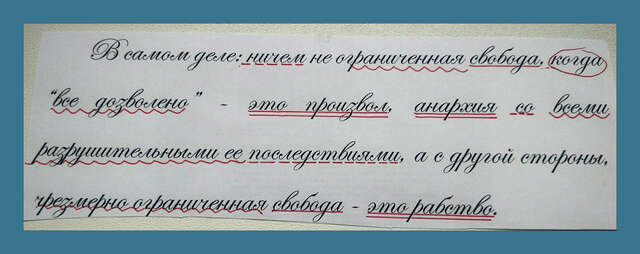 В самом деле: ничем не ограниченная свобода, когда
"все дозволено" - это произвол, анархия со всеми
разрушительными ее последствиями, а с другой стороны,
чрезмерно ограниченная свобода - это рабство.